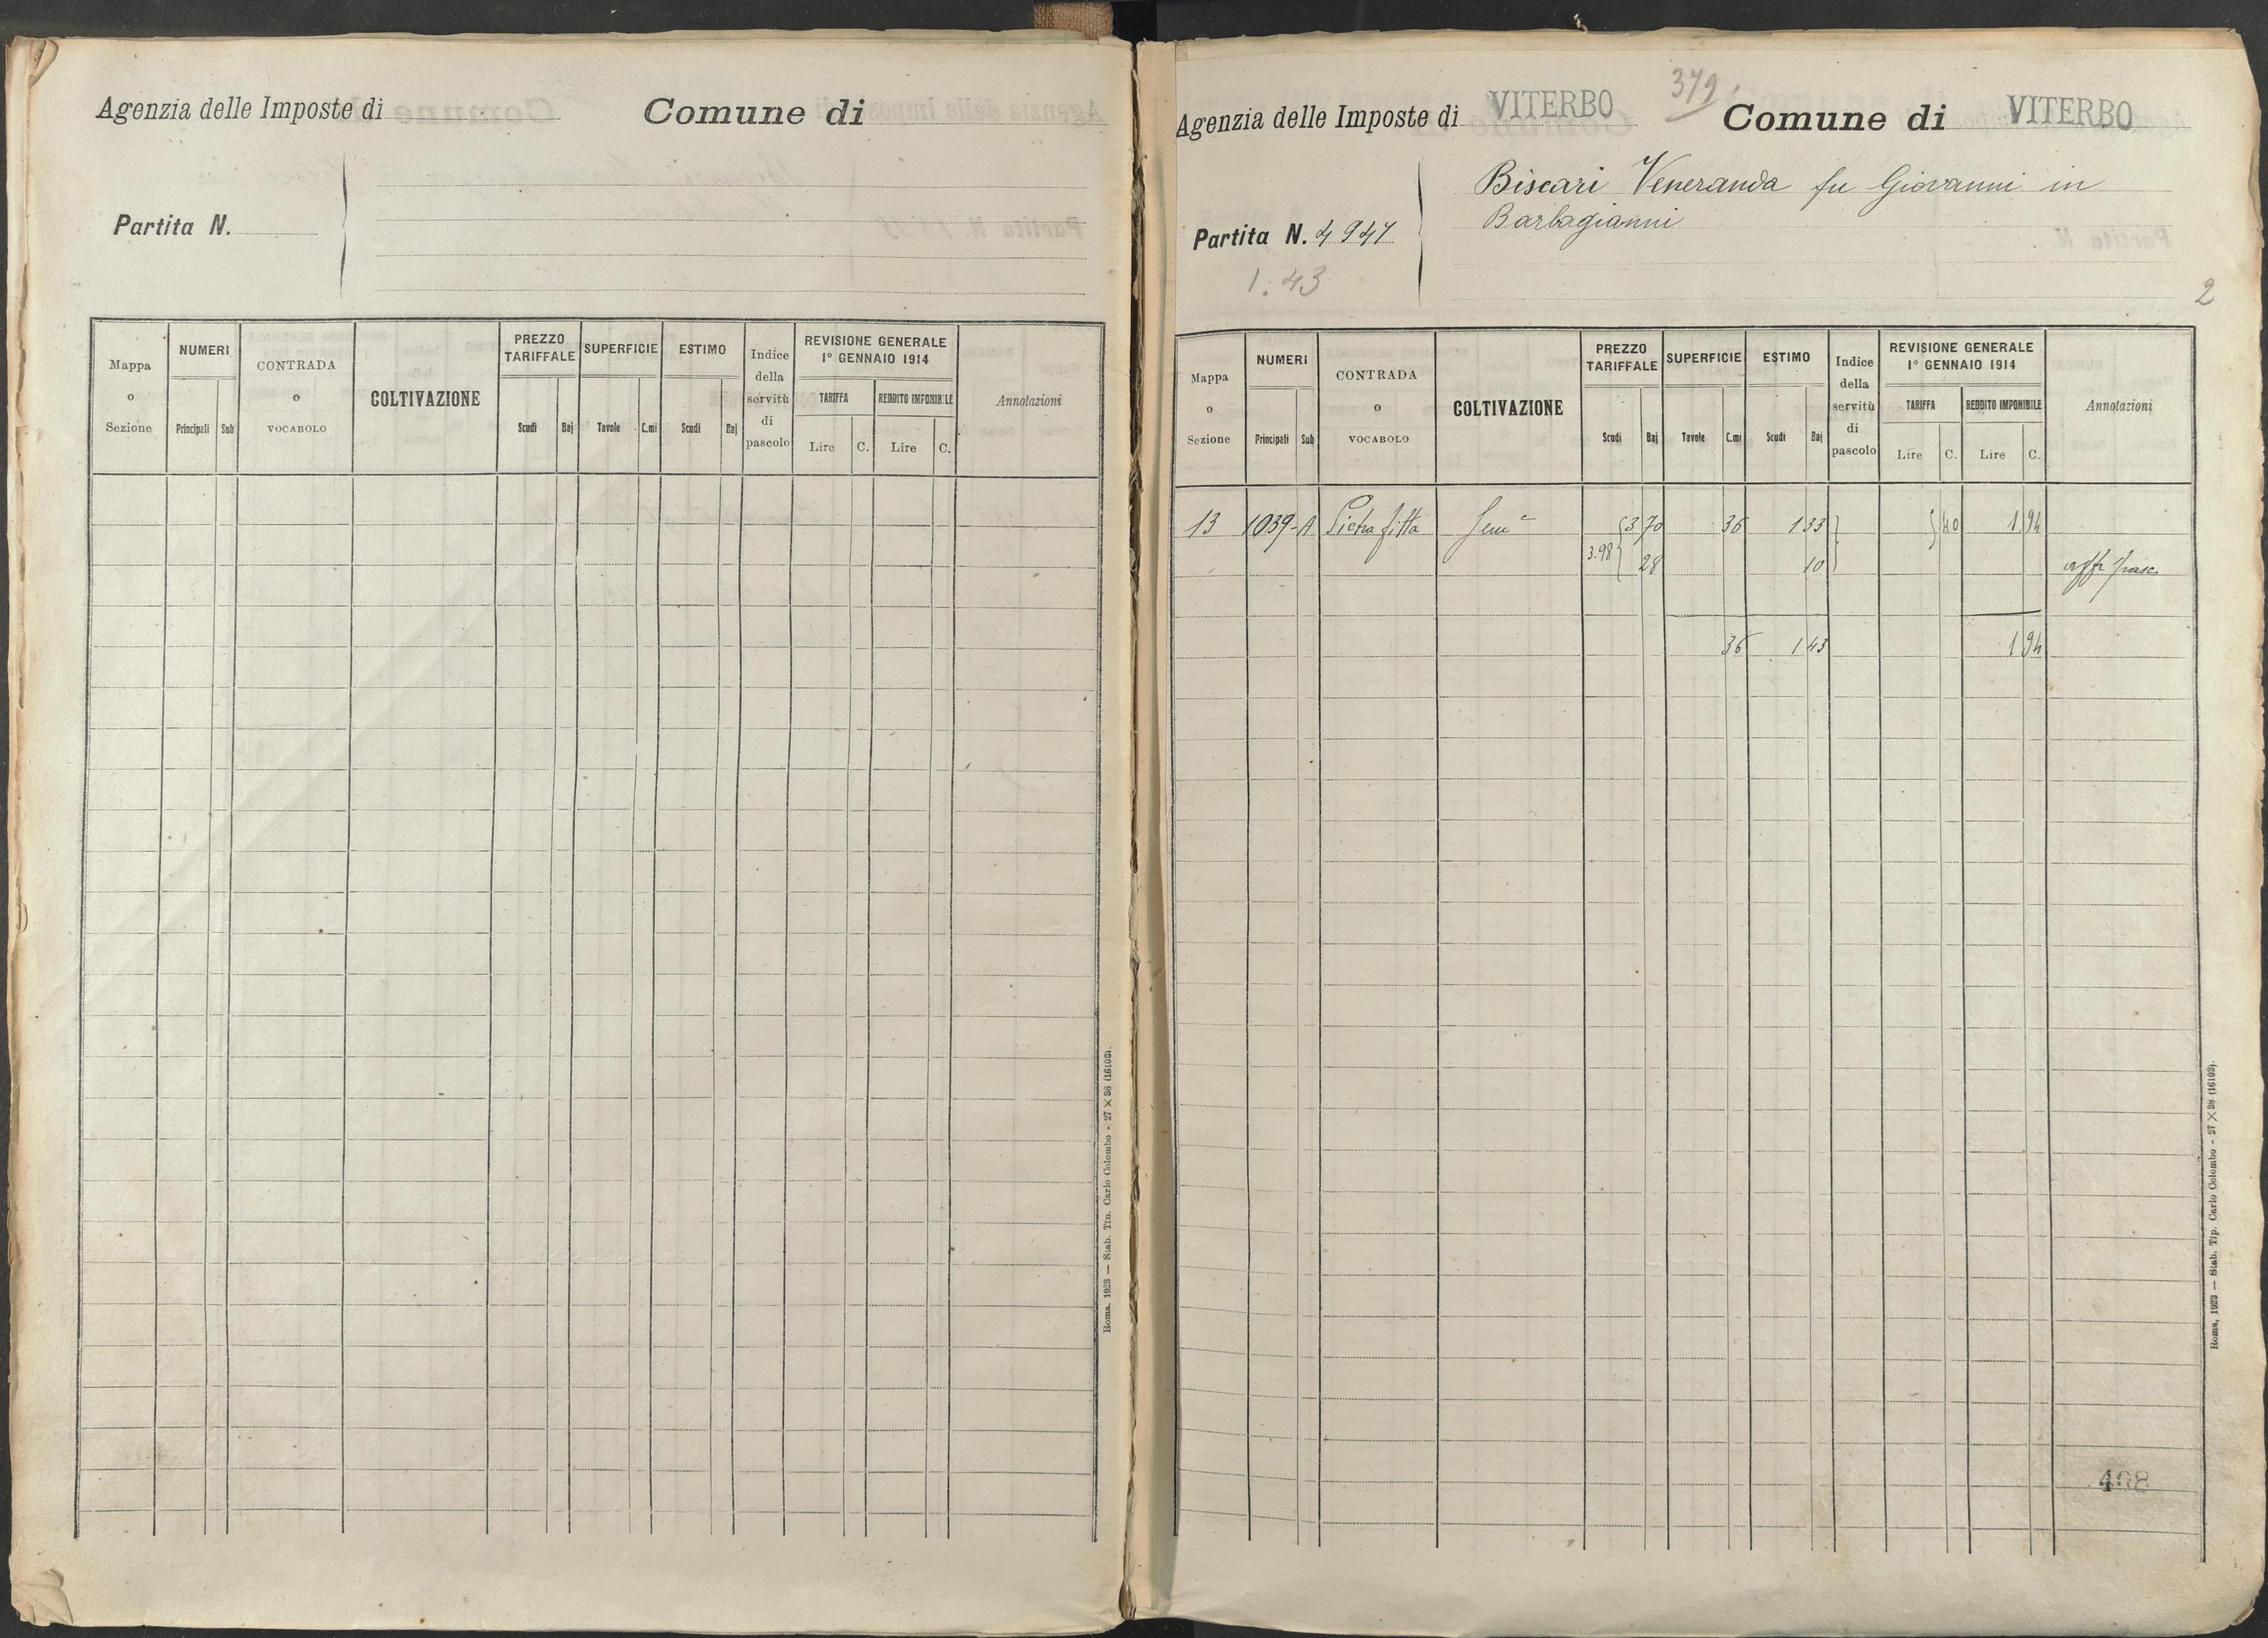 Agenzia delle Imposte di Comune di
Partita N.
Mappa o Sezione
NUMERI
Principali Sub
CONTRADA o VOCABOLO
COLTIVAZIONE
PREZZO TARIFFALE
Scudi Baj
SUPERFICIE
Tavole C.mi
ESTIMO
Scudi Baj
Indice della servitù di pascolo
REVISIONE GENERALE
1° GENNAIO 1914
TARIFFA REDDITO IMPONIBILE
Lire C. Lire C.
Annotazioni
Roma, 1923 — Stab. Tip. Carlo Colombo - 27 X 38 (16103).
379
Agenzia delle Imposte di VITERBO Comune di VITERBO
Biscari Veneranda fu Giovanni in
Barbagianni
Partita N. 4947
1:43
2
Mappa o Sezione
NUMERI
Principali Sub
CONTRADA o VOCABOLO
COLTIVAZIONE
PREZZO TARIFFALE
Scudi Baj
SUPERFICIE
Tavole C.mi
ESTIMO
Scudi Baj
Indice della servitù di pascolo
REVISIONE GENERALE
1° GENNAIO 1914
TARIFFA REDDITO IMPONIBILE
Lire C. Lire C.
Annotazioni
13 1039-A Pietra fitta Semᵉ 3 70 36 1 33 40 1 94
3.98 28 10 affr pasc.
36 1 43 1 94
408
Roma, 1923 — Stab. Tip. Carlo Colombo - 27 X 38 (16103).